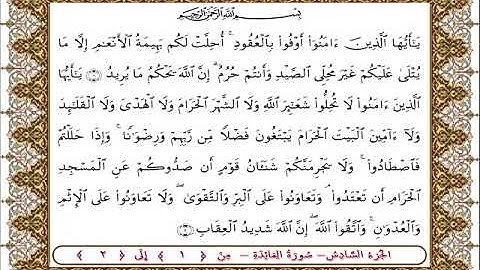 بِسْمِ ٱللَّهِ ٱلرَّحْمَٰنِ ٱلرَّحِيمِ
يَٰٓأَيُّهَا ٱلَّذِينَ ءَامَنُوٓا۟ أَوْفُوا۟ بِٱلْعُقُودِ ۚ أُحِلَّتْ لَكُم بَهِيمَةُ ٱلْأَنْعَٰمِ إِلَّا مَا
يُتْلَىٰ عَلَيْكُمْ غَيْرَ مُحِلِّى ٱلصَّيْدِ وَأَنتُمْ حُرُمٌ ۗ إِنَّ ٱللَّهَ يَحْكُمُ مَا يُرِيدُ ﴿١﴾ يَٰٓأَيُّهَا
ٱلَّذِينَ ءَامَنُوا۟ لَا تُحِلُّوا۟ شَعَٰٓئِرَ ٱللَّهِ وَلَا ٱلشَّهْرَ ٱلْحَرَامَ وَلَا ٱلْهَدْىَ وَلَا ٱلْقَلَٰٓئِدَ
وَلَآ ءَآمِّينَ ٱلْبَيْتَ ٱلْحَرَامَ يَبْتَغُونَ فَضْلًا مِّن رَّبِّهِمْ وَرِضْوَٰنًا ۚ وَإِذَا حَلَلْتُمْ
فَٱصْطَادُوا۟ ۚ وَلَا يَجْرِمَنَّكُمْ شَنَـَٔانُ قَوْمٍ أَن صَدُّوكُمْ عَنِ ٱلْمَسْجِدِ
ٱلْحَرَامِ أَن تَعْتَدُوا۟ ۘ وَتَعَاوَنُوا۟ عَلَى ٱلْبِرِّ وَٱلتَّقْوَىٰ ۖ وَلَا تَعَاوَنُوا۟ عَلَى ٱلْإِثْمِ
وَٱلْعُدْوَٰنِ ۚ وَٱتَّقُوا۟ ٱللَّهَ ۖ إِنَّ ٱللَّهَ شَدِيدُ ٱلْعِقَابِ ﴿٢﴾
الجزء السادس - سورة المائدة - من ﴿ ١ ﴾ إلى ﴿ ٢ ﴾